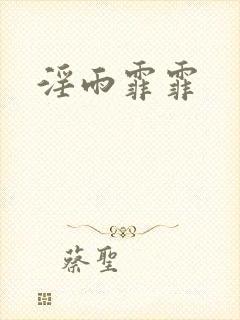 淫雨霏霏
蔡聖